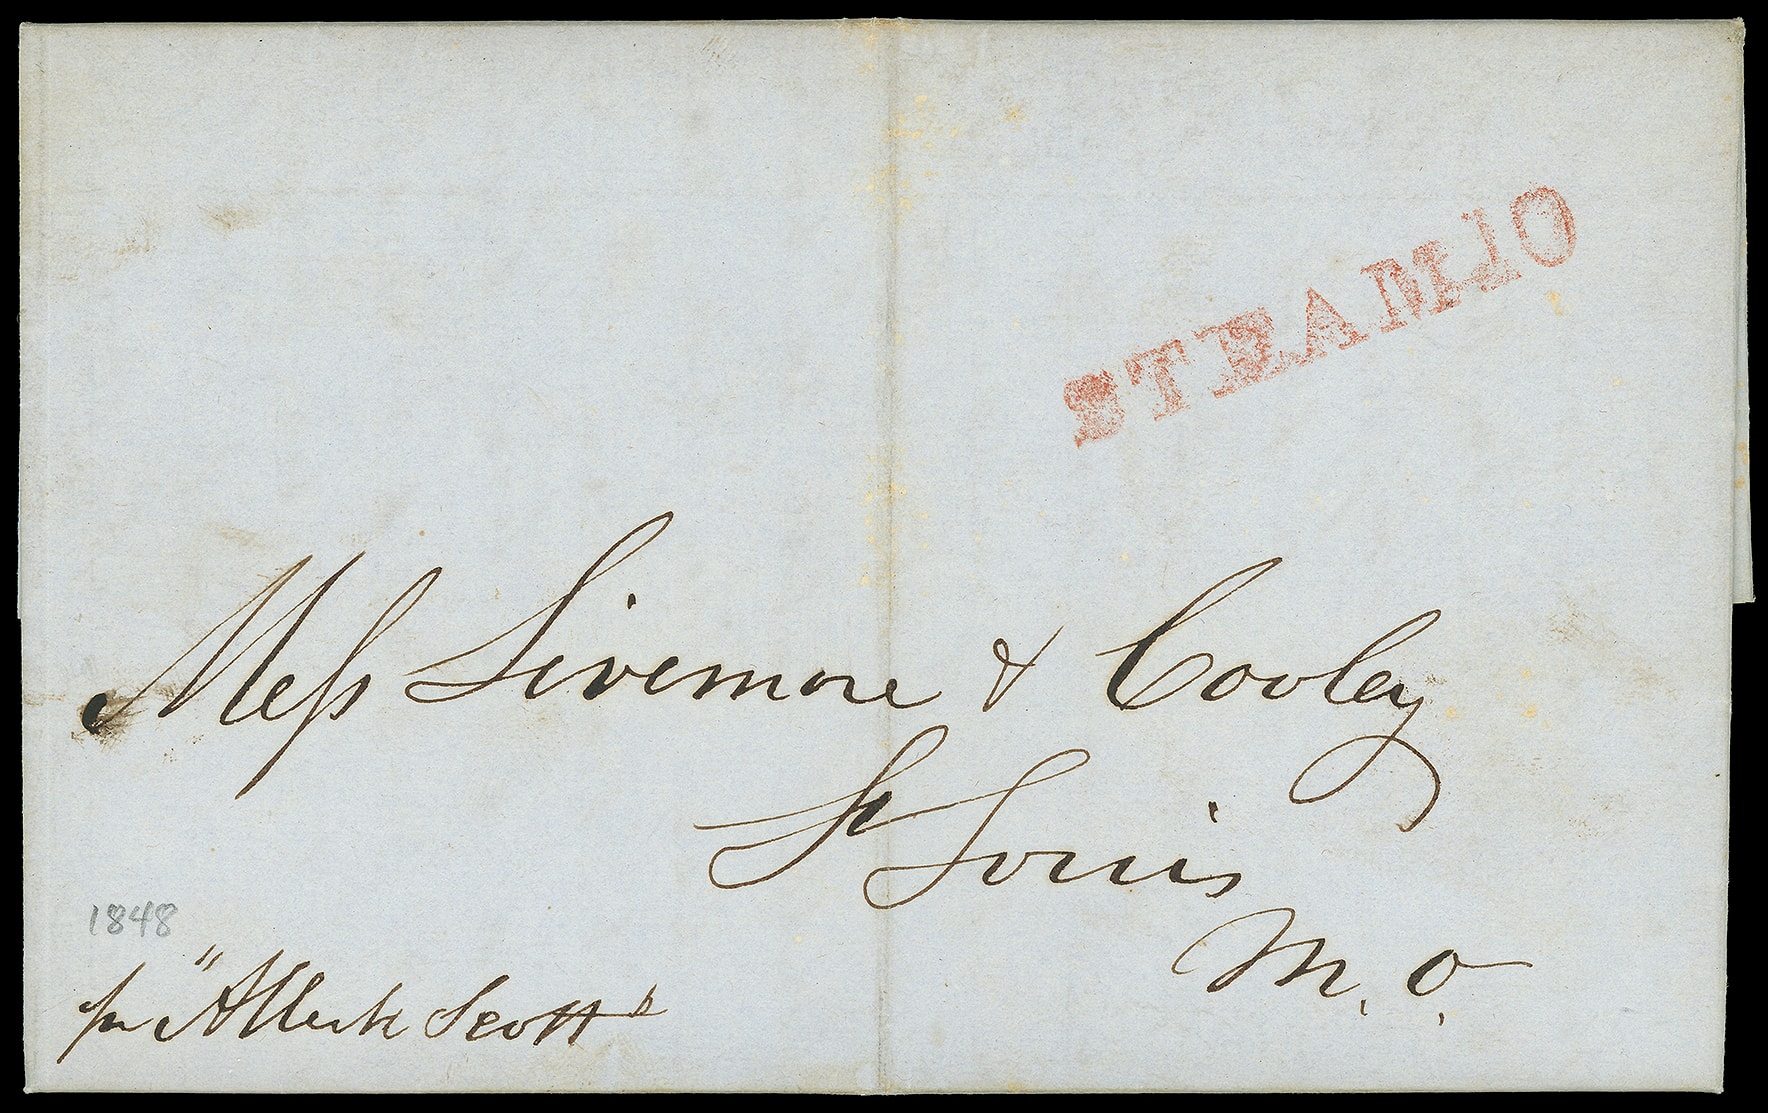 STEAM 10
Mess Livemore & Cooley
St Louis
M.O.
1848
pr "Albert Scott"